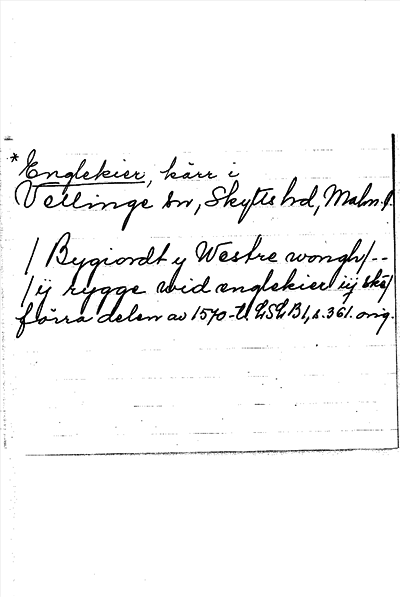 *Englekier, kärr i
Vellinge sn, Skytts hd, Malm. l.
/ Bygiordt y Westre wongh/--
/ ij rygge wid englekier iij skp/
förra delen av 1570-t. LSLB1, s. 361. orig.